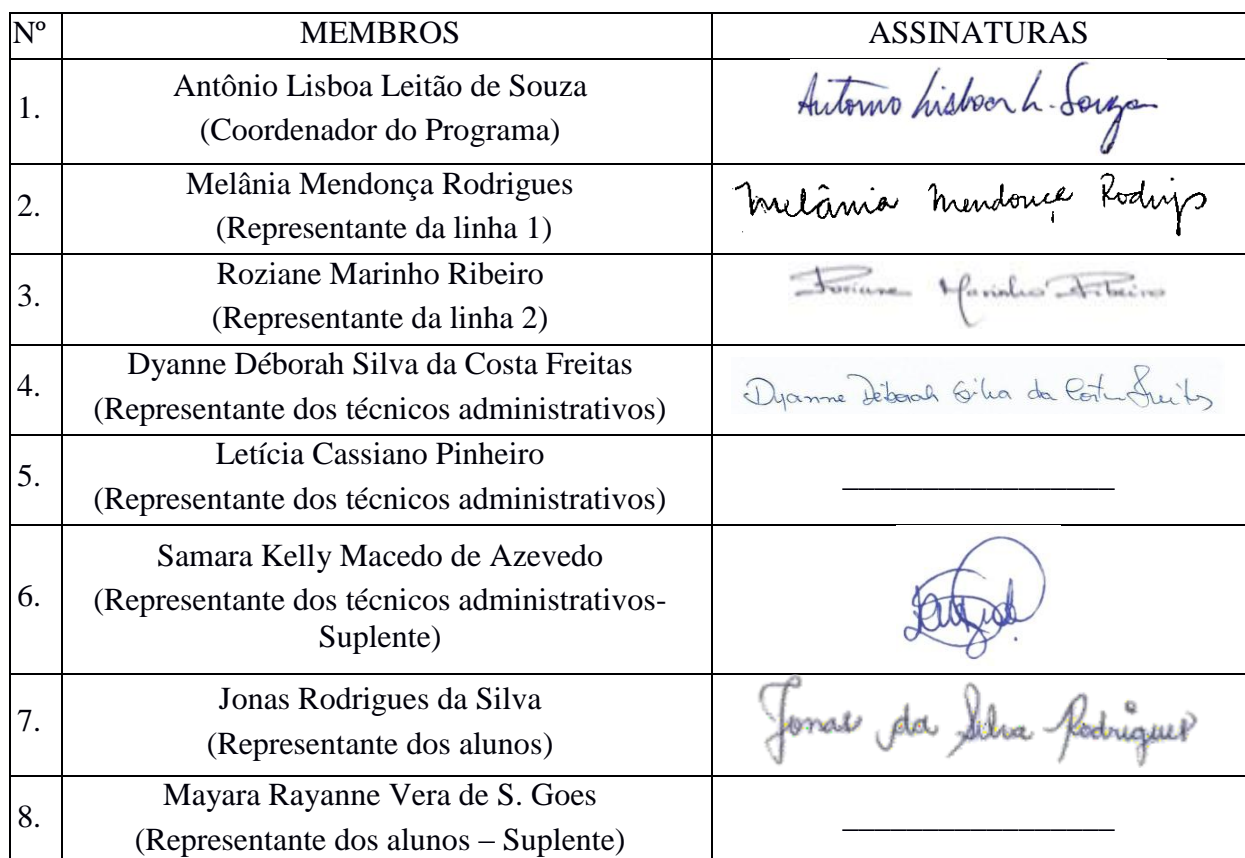 Nº MEMBROS ASSINATURAS
1. Antônio Lisboa Leitão de Souza
(Coordenador do Programa)
Antonio Lisboa L. Souza
2. Melânia Mendonça Rodrigues
(Representante da linha 1)
Melânia Mendonça Rodrigs
3. Roziane Marinho Ribeiro
(Representante da linha 2)
Roziane Marinho Ribeiro
4. Dyanne Déborah Silva da Costa Freitas
(Representante dos técnicos administrativos)
Dyanne Déborah Silva da Costa Freitas
5. Letícia Cassiano Pinheiro
(Representante dos técnicos administrativos)
6. Samara Kelly Macedo de Azevedo
(Representante dos técnicos administrativos-
Suplente)
7. Jonas Rodrigues da Silva
(Representante dos alunos)
Jonas da Silva Rodrigues
8. Mayara Rayanne Vera de S. Goes
(Representante dos alunos – Suplente)